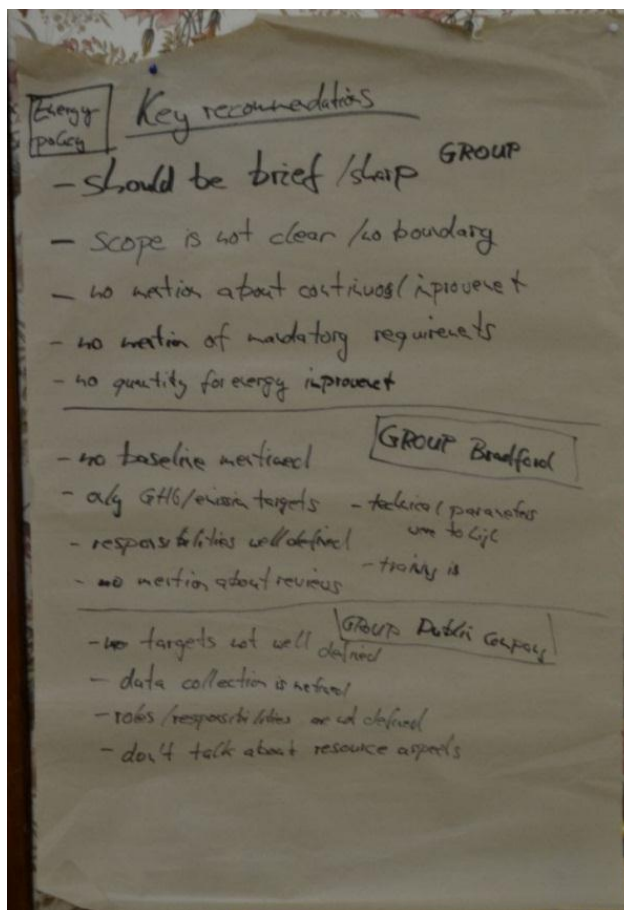 Energy policy
Key recommendations
GROUP
- should be brief / sharp
- scope is not clear / no boundary
- no mention about continuos / improvemet
- no mention of mandatory requiremets
- no quantity for energy improvemet
GROUP Bradford
- no baseline mentioned
- only GHG/emission targets
- responsibilities well defined
- no mention about reviews
- technical parameters
were to high
- training is
GROUP Dublin Company
- targets not well defined
- data collection is
- roles/responsibilities are not defined
- don't talk about resource aspects